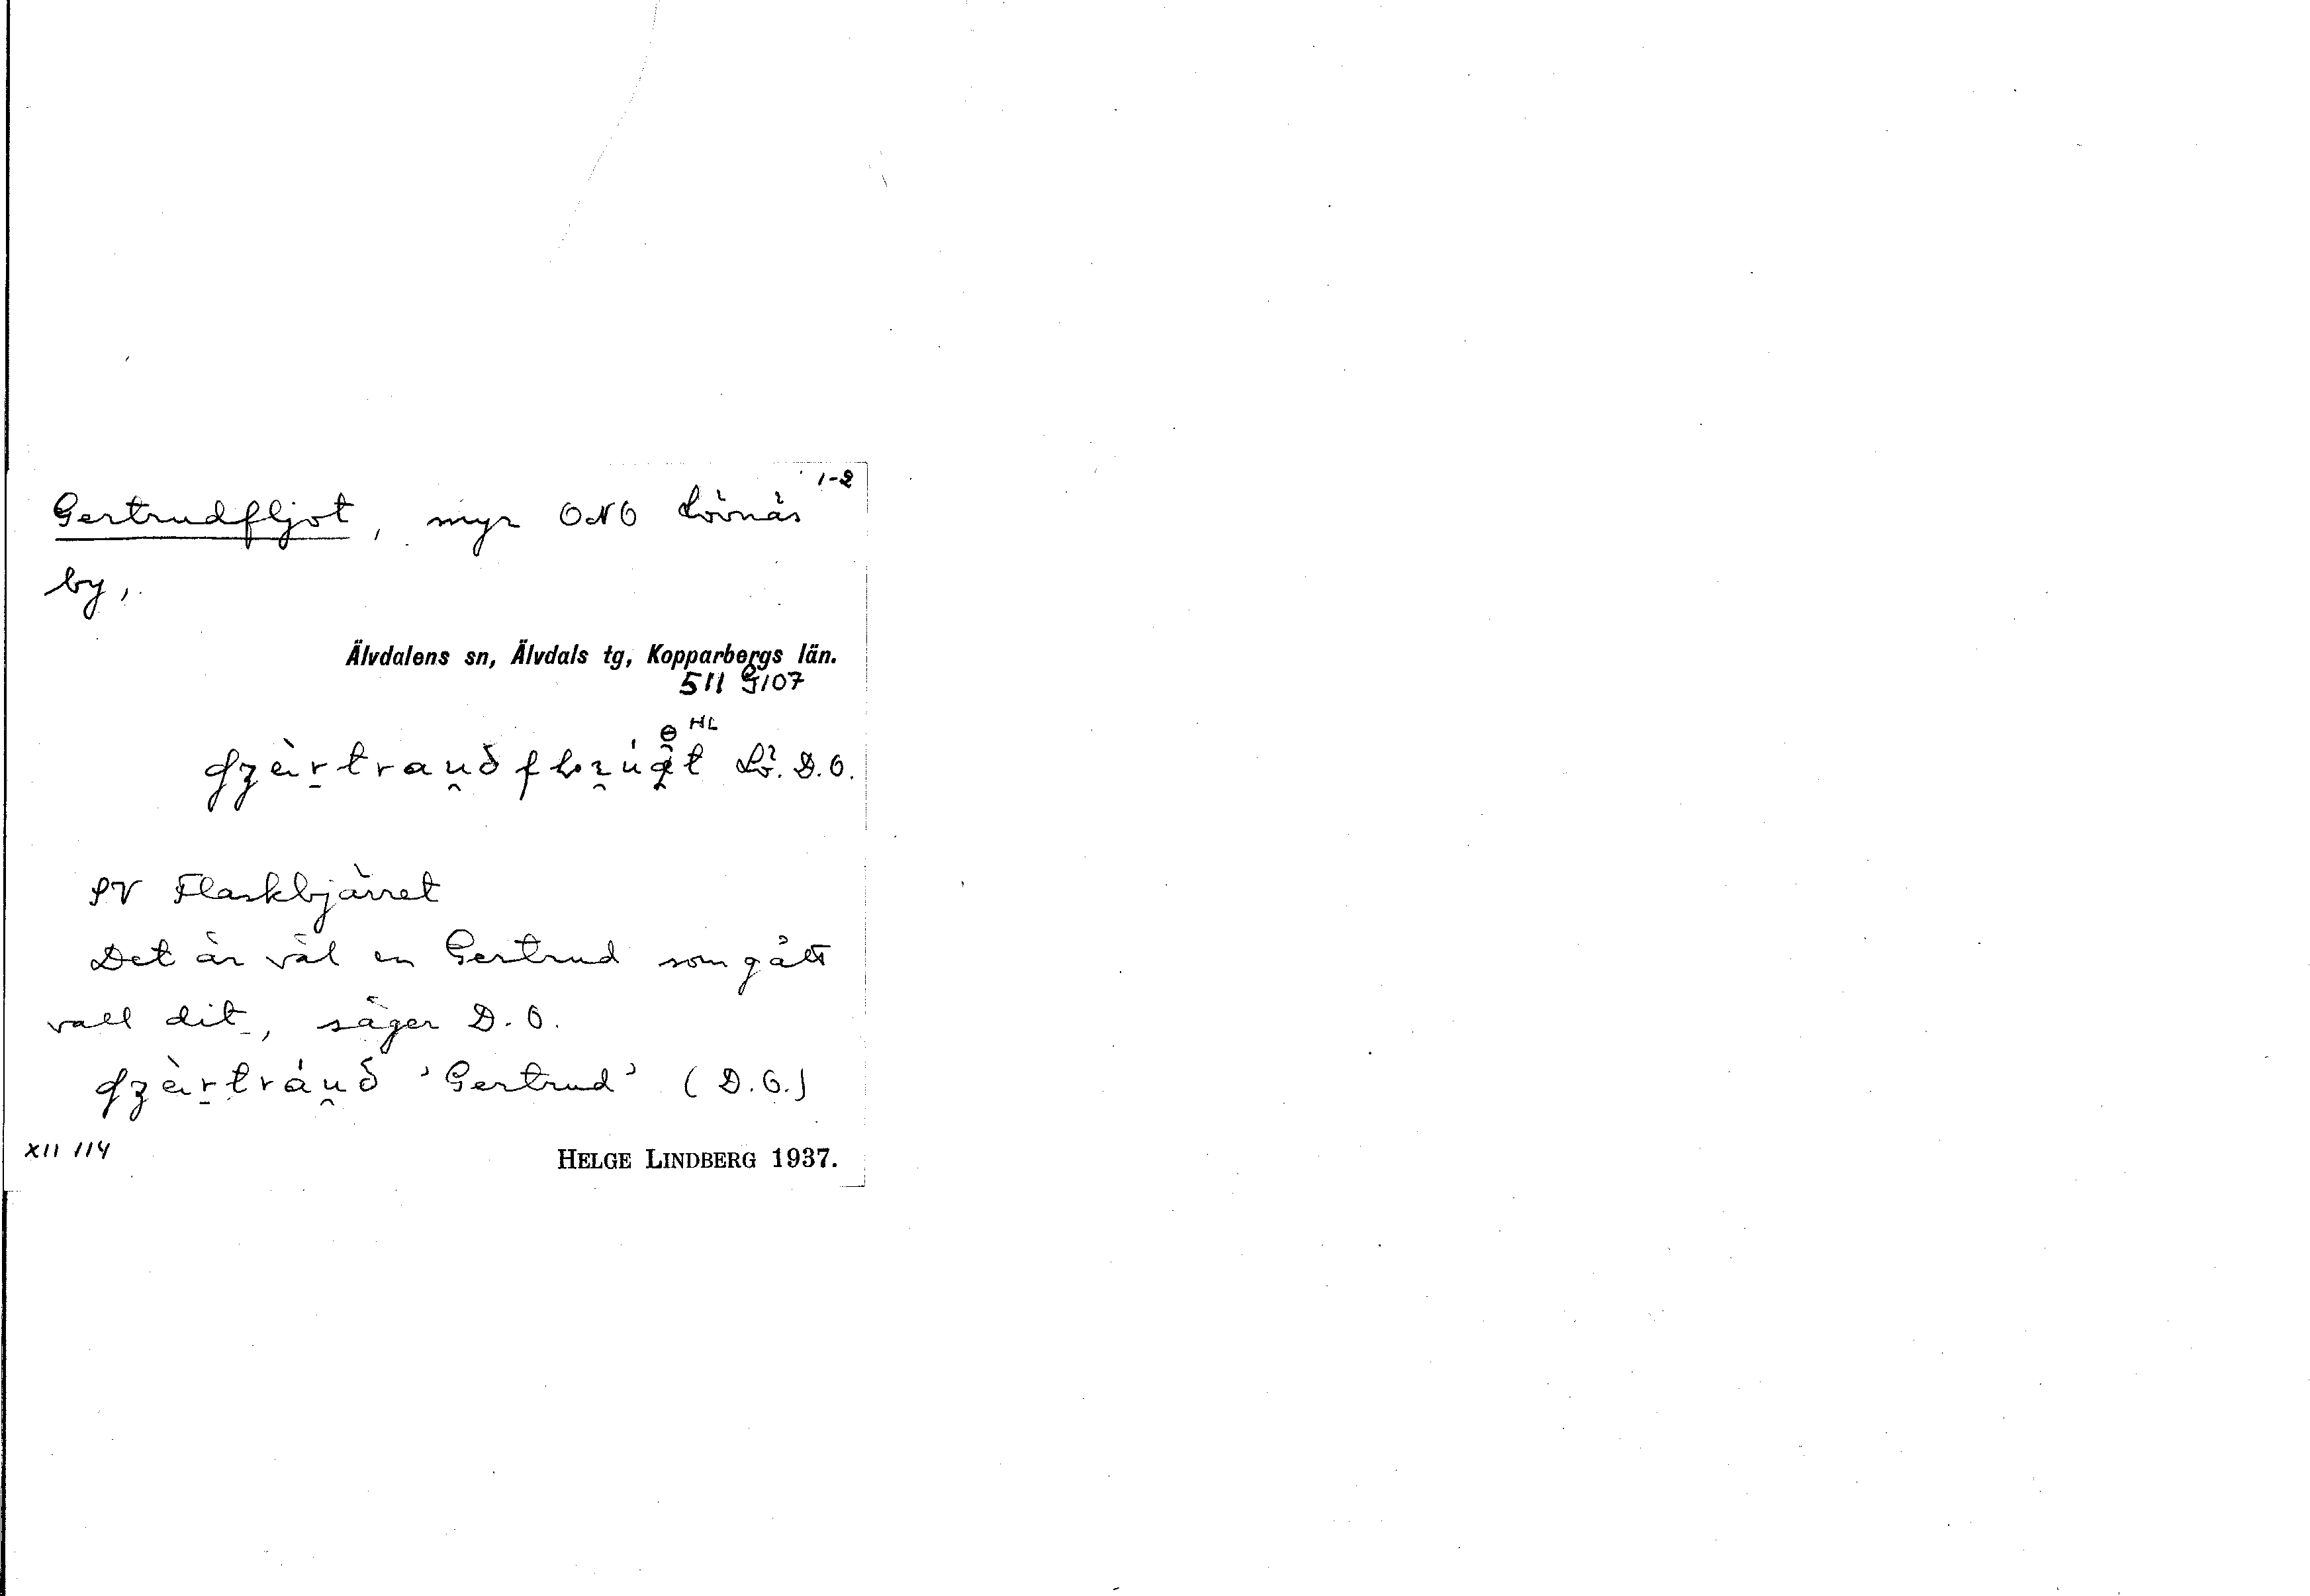 1-2
Gertrudfljot, myr ONO Lövnäs
by,
Älvdalens sn, Älvdals tg, Kopparbergs län.
511 G107
HL
Lö. D.O.
SV Flaskbjärret
Det är väl en Gertrud som gått
vall dit, säger D.O.
'Gertrud' (D.O.)
XII 114
HELGE LINDBERG 1937.